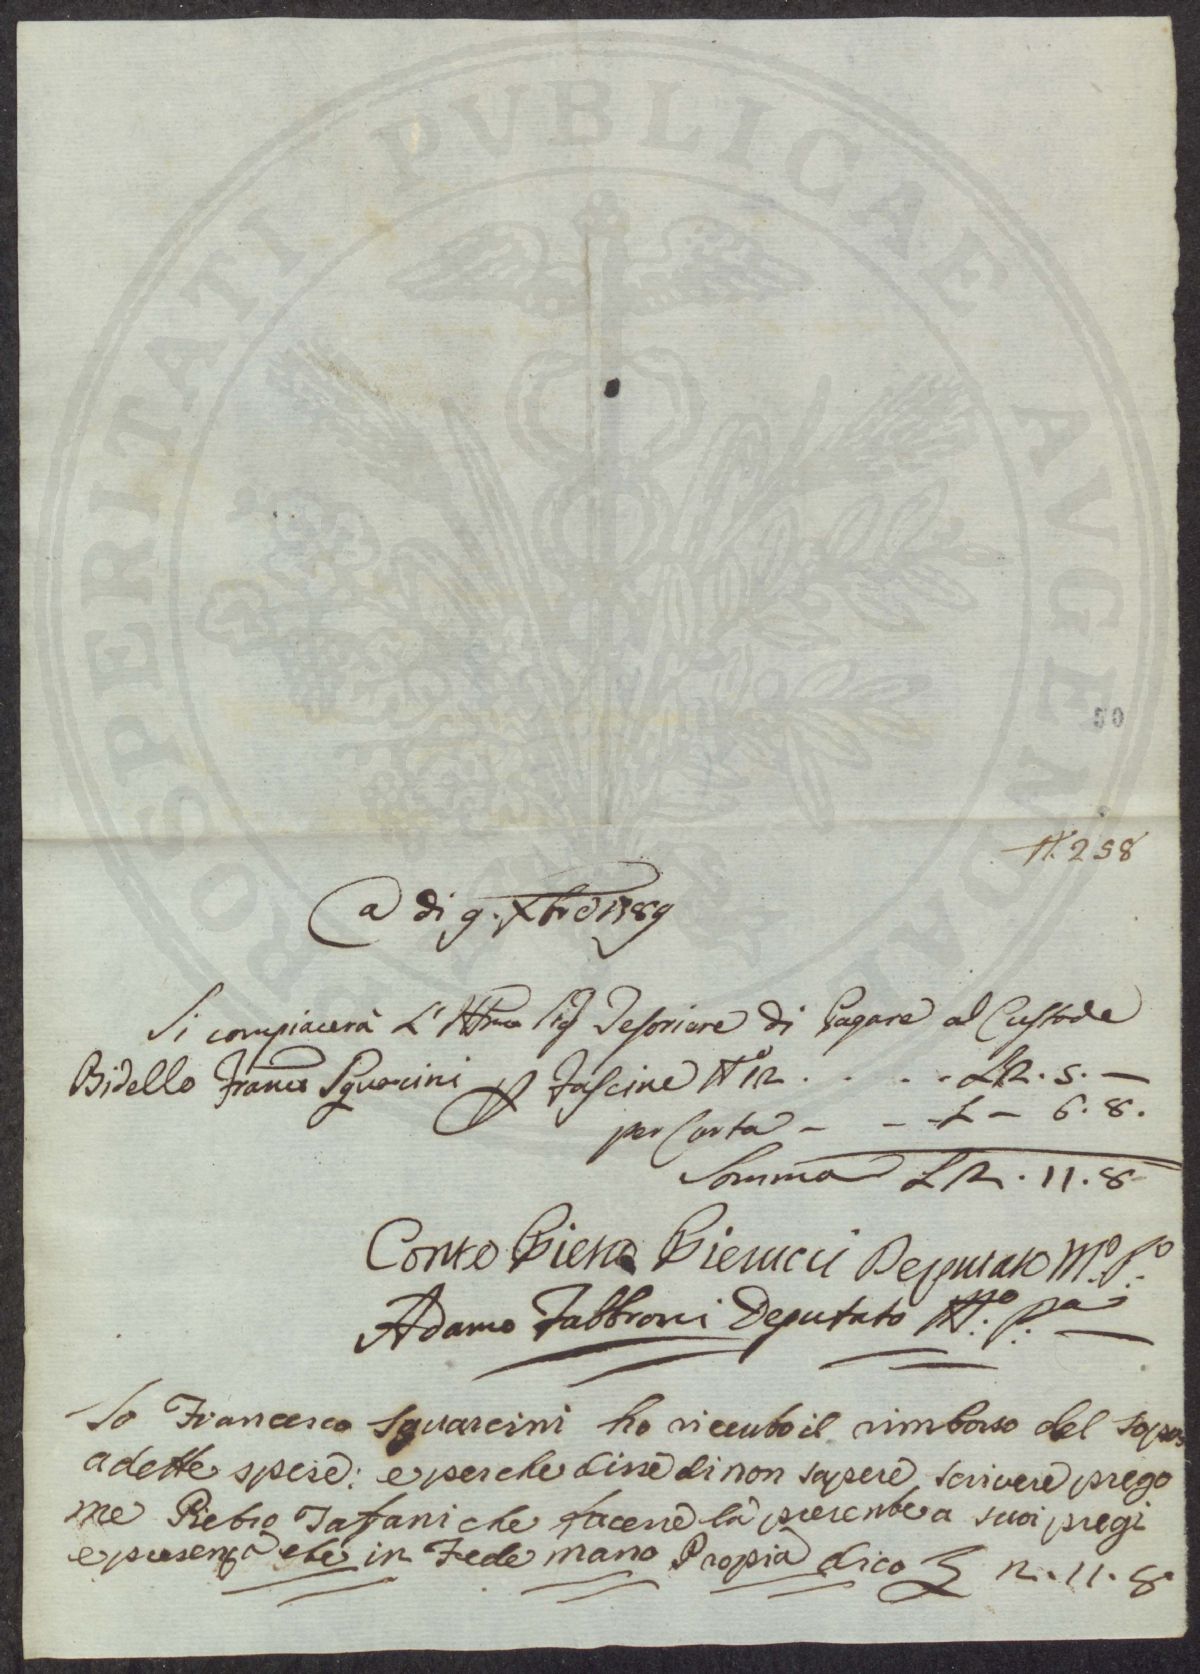 PROSPERITATI PUBLICAE AVGENDAE
50
N. 258
A di 9. Xbre 1789
Si compiacerà L'Illmo Sig Tesoriere di Pagare al Custode
Bidello Franco Sguarcini p Fascine No 12 . . . . . L 12. 5. —
per Carta — — — L — 6. 8.
Somma L 12. 11. 8
Conte Pietro Pierucci Deputato Mo. Po.
Adamo Fabbroni Deputato Mo. Pa
Io Francesco Sguarcini ho riceuto il rimborso del sopra
adette spese: e perche disse di non sapere scrivere prego
me Pietro Taffani che facesse la presente a suoi pregi
e presenza che in Fede mano Propia dico £ 12. 11. 8